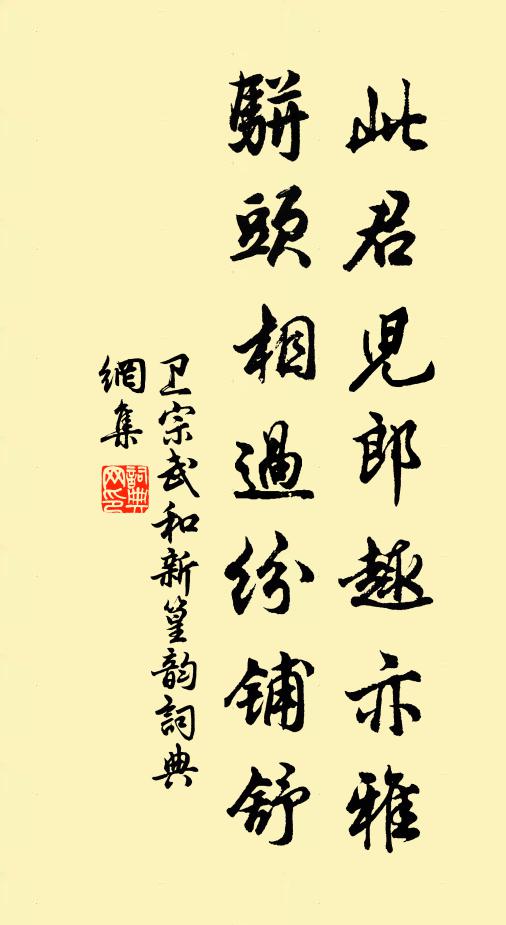 此君児郎趣亦雅
駢頭相過紛鋪舒
卫宗武和新篁韵詞典
網集
詞典网印